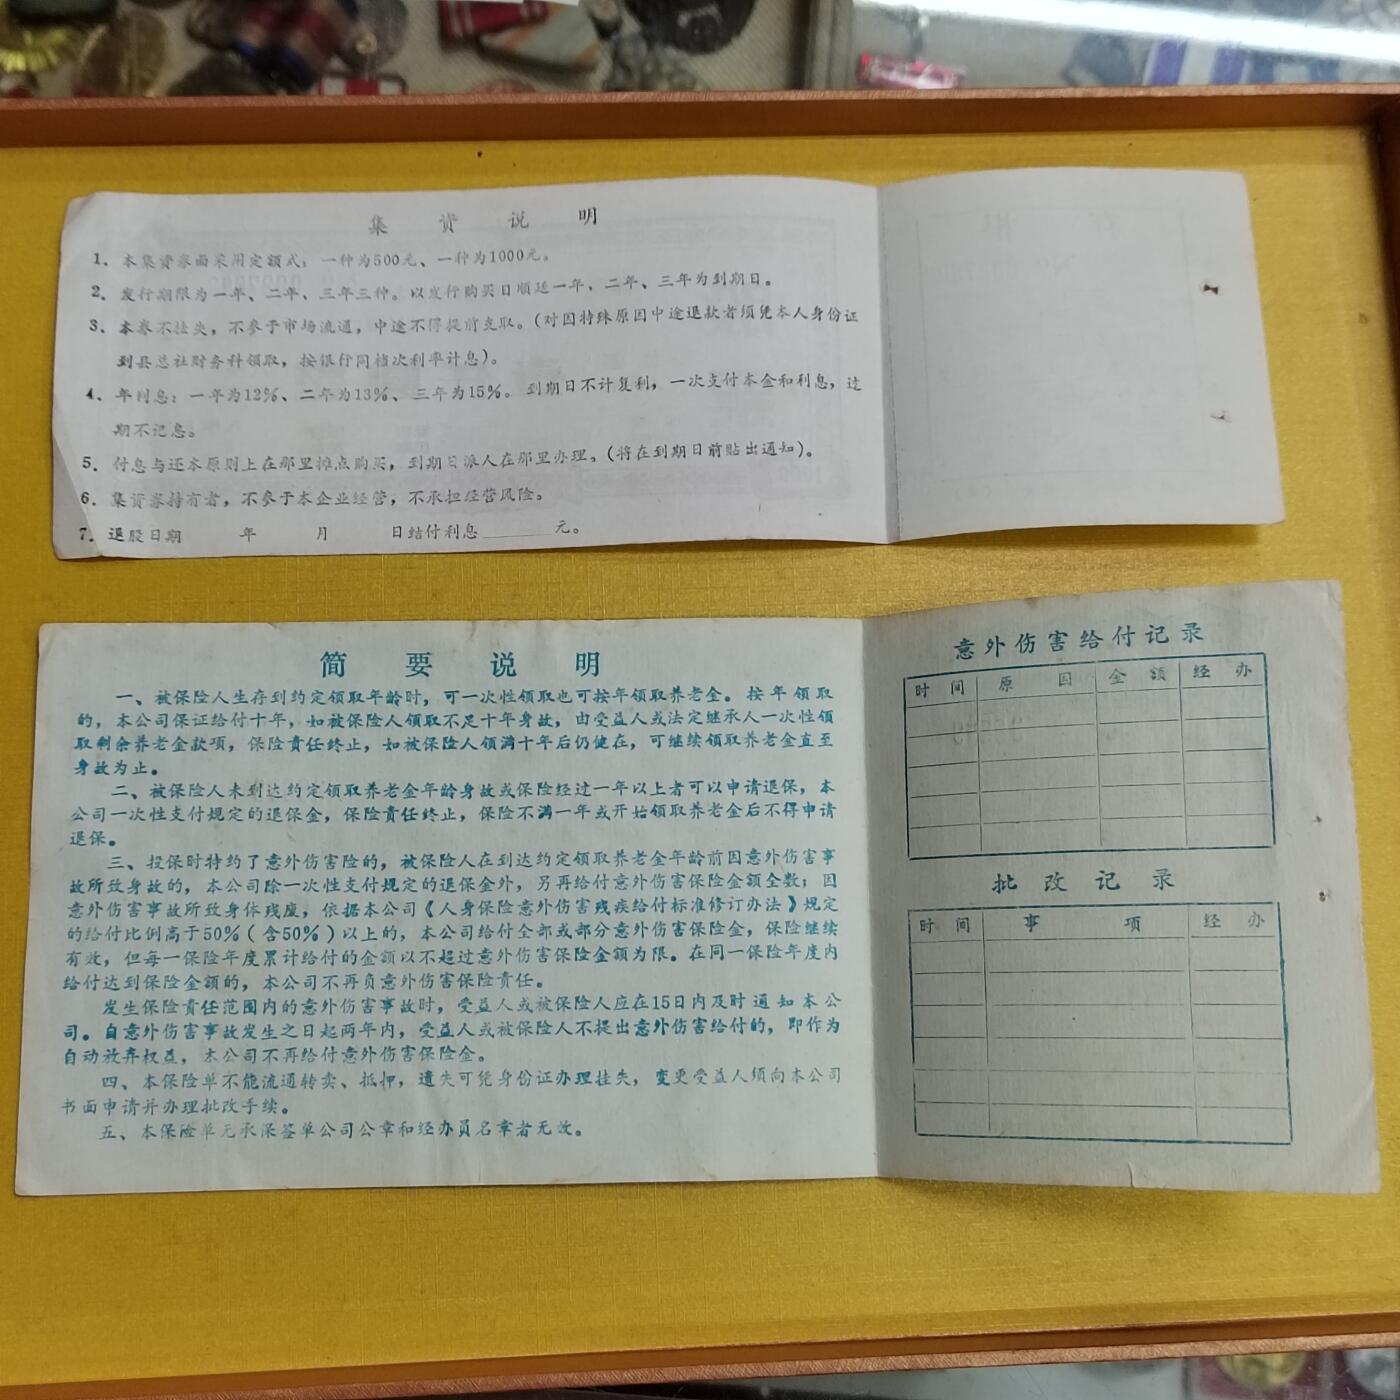 集 资 说 明
1. 本集资券面采用定额式，一种为500元、一种为1000元。
2. 发行期限为一年、二年、三年三种。以发行购买日顺延一年、二年、三年为到期日。
3. 本券不挂失，不参于市场流通，中途不得提前支取。(对因特殊原因中途退款者须凭本人身份证
到县总社财务科领取，按银行同档次利率计息)。
4. 年利息：一年为12%、二年为13%、三年为15%。到期日不计复利，一次支付本金和利息，过
期不记息。
5. 付息与还本原则上在那里摊点购买，到期日派人在那里办理。(将在到期日前贴出通知)。
6. 集资券持有者，不参于本企业经营，不承担经营风险。
7. 退股日期 年 月 日结付利息______元。
简 要 说 明
一、被保险人生存到约定领取年龄时，可一次性领取也可按年领取养老金。按年领取
的，本公司保证给付十年，如被保险人领取不足十年身故，由受益人或法定继承人一次性领
取剩余养老金款项，保险责任终止，如被保险人领满十年后仍健在，可继续领取养老金直至
身故为止。
二、被保险人未到达约定领取养老金年龄身故或保险经过一年以上者可以申请退保，本
公司一次性支付规定的退保金，保险责任终止，保险不满一年或开始领取养老金后不得申请
退保。
三、投保时特约了意外伤害险的，被保险人在到达约定领取养老金年龄前因意外伤害事
故所致身故的，本公司除一次性支付规定的退保金外，另再给付意外伤害保险金额全数；因
意外伤害事故所致身体残废，依据本公司《人身保险意外伤害残疾给付标准修订办法》规定
的给付比例高于50%(含50%)以上的，本公司给付全部或部分意外伤害保险金，保险继续
有效，但每一保险年度累计给付的金额以不超过意外伤害保险金额为限。在同一保险年度内
给付达到保险金额的，本公司不再负意外伤害保险责任。
发生保险责任范围内的意外伤害事故时，受益人或被保险人应在15日内及时通知本公
司。自意外伤害事故发生之日起两年内，受益人或被保险人不提出意外伤害给付的，即作为
自动放弃权益，本公司不再给付意外伤害保险金。
四、本保险单不能流通转卖、抵押，遗失可凭身份证办理挂失，变更受益人须向本公司
书面申请并办理批改手续。
五、本保险单无承保签单公司公章和经办员名章者无效。
意外伤害给付记录
时 间 原 因 金 额 经 办
批 改 记 录
时 间 事 项 经 办